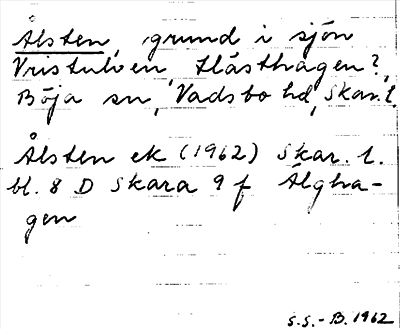 Ålsten, grund i sjön
Vristulven Hästhagen?,
Böja sn, Vadsbo hd, Skar. l.
Ålsten ek (1962) Skar. l.
bl. 8 D Skara 9 f Älgha-
gen
S.S.-B. 1962